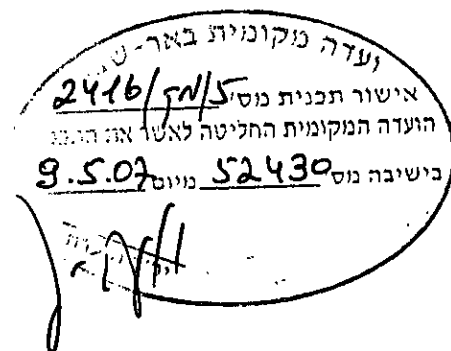 ועדה מקומית באר-
אישור תכנית מס' 5/מק/2416
הועדה המקומית החליטה לאשר את
בישיבה מס' 52430 מיום 9.5.07